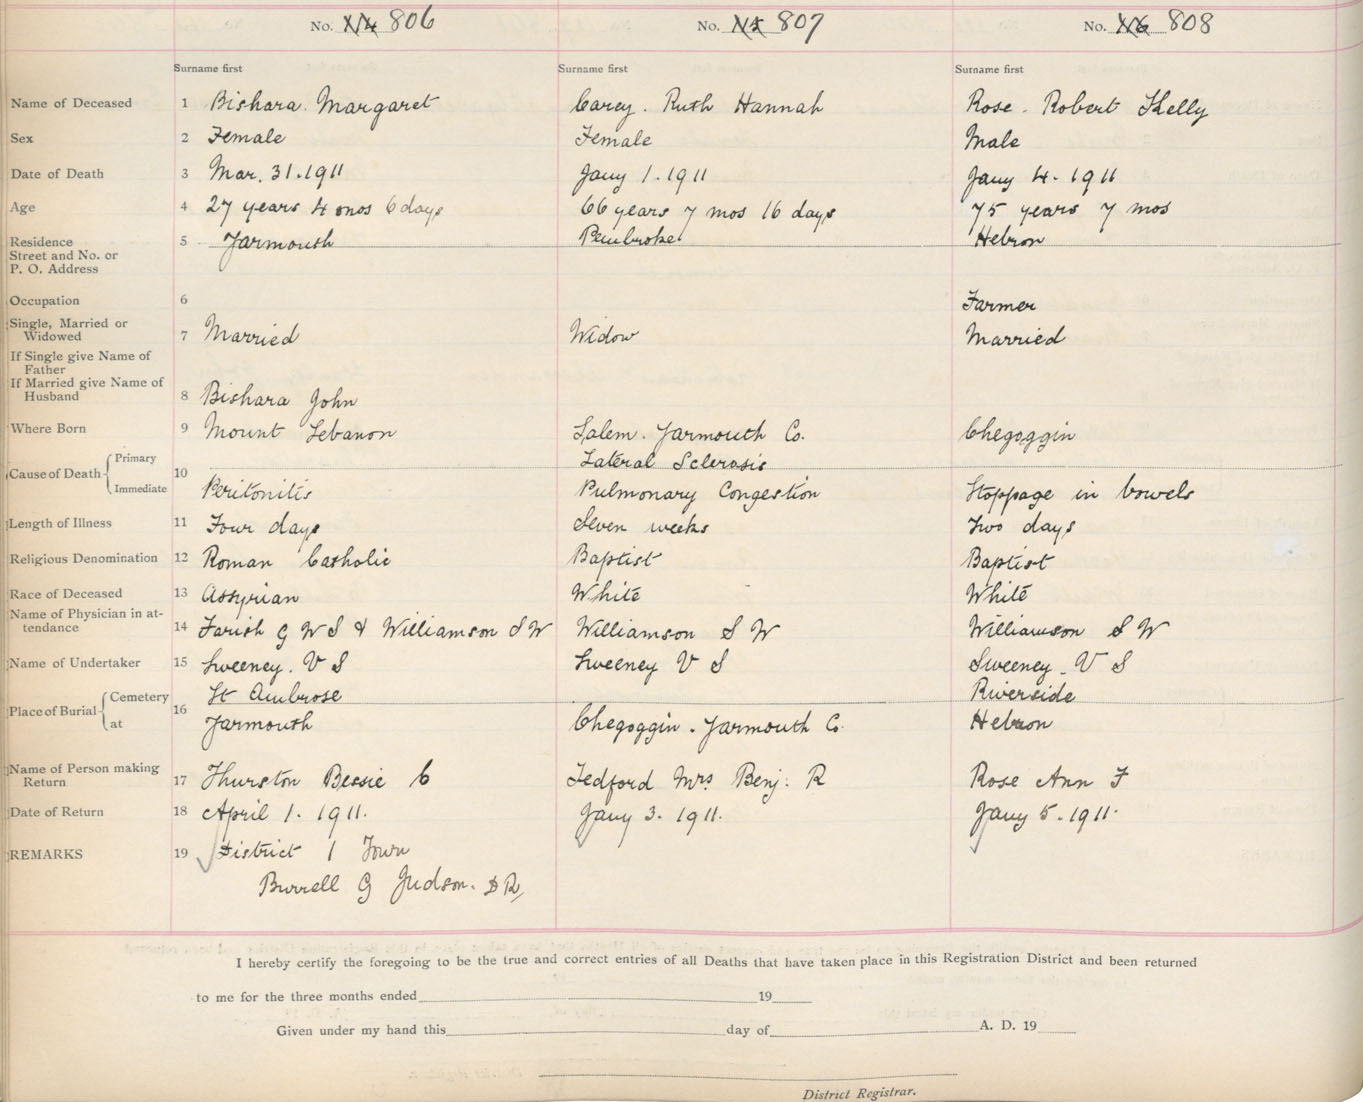 No. 806 No. 807 No. 808
Surname first Surname first Surname first
Name of Deceased 1 Bishara. Margaret Carey. Ruth Hannah Rose. Robert Kelly
Sex 2 Female Female Male
Date of Death 3 Mar. 31.1911 Jany 1.1911 Jany 4.1911
Age 4 27 years 4 mos 6 days 66 years 7 mos 16 days 75 years 7 mos
Residence 5 Yarmouth Pembroke Hebron
Street and No. or
P. O. Address
Occupation 6 Farmer
Single, Married or
Widowed 7 Married Widow Married
If Single give Name of
Father
If Married give Name of
Husband 8 Bishara John
Where Born 9 Mount Lebanon Salem. Yarmouth Co. Chegoggin
Cause of Death Primary Lateral Sclerosis
10
Immediate Peritonitis Pulmonary Congestion Stoppage in bowels
Length of Illness 11 Four days Seven weeks Two days
Religious Denomination 12 Roman Catholic Baptist Baptist
Race of Deceased 13 Assyrian White White
Name of Physician in at-
tendance 14 Farish G W S & Williamson S W Williamson S W Williamson S W
Name of Undertaker 15 Sweeney. V S Sweeney V S Sweeney. V S
Place of Burial Cemetery St Ambrose Riverside
16
at Yarmouth Chegoggin. Yarmouth Co. Hebron
Name of Person making
Return 17 Thurston Bessie C Tedford Mrs Benj. R Rose Ann F
Date of Return 18 April 1. 1911. Jany 3. 1911. Jany 5. 1911.
REMARKS 19 District 1 Town
Burrell G Judson. D R,
I hereby certify the foregoing to be the true and correct entries of all Deaths that have taken place in this Registration District and been returned
to me for the three months ended 19
Given under my hand this day of A. D. 19
District Registrar.